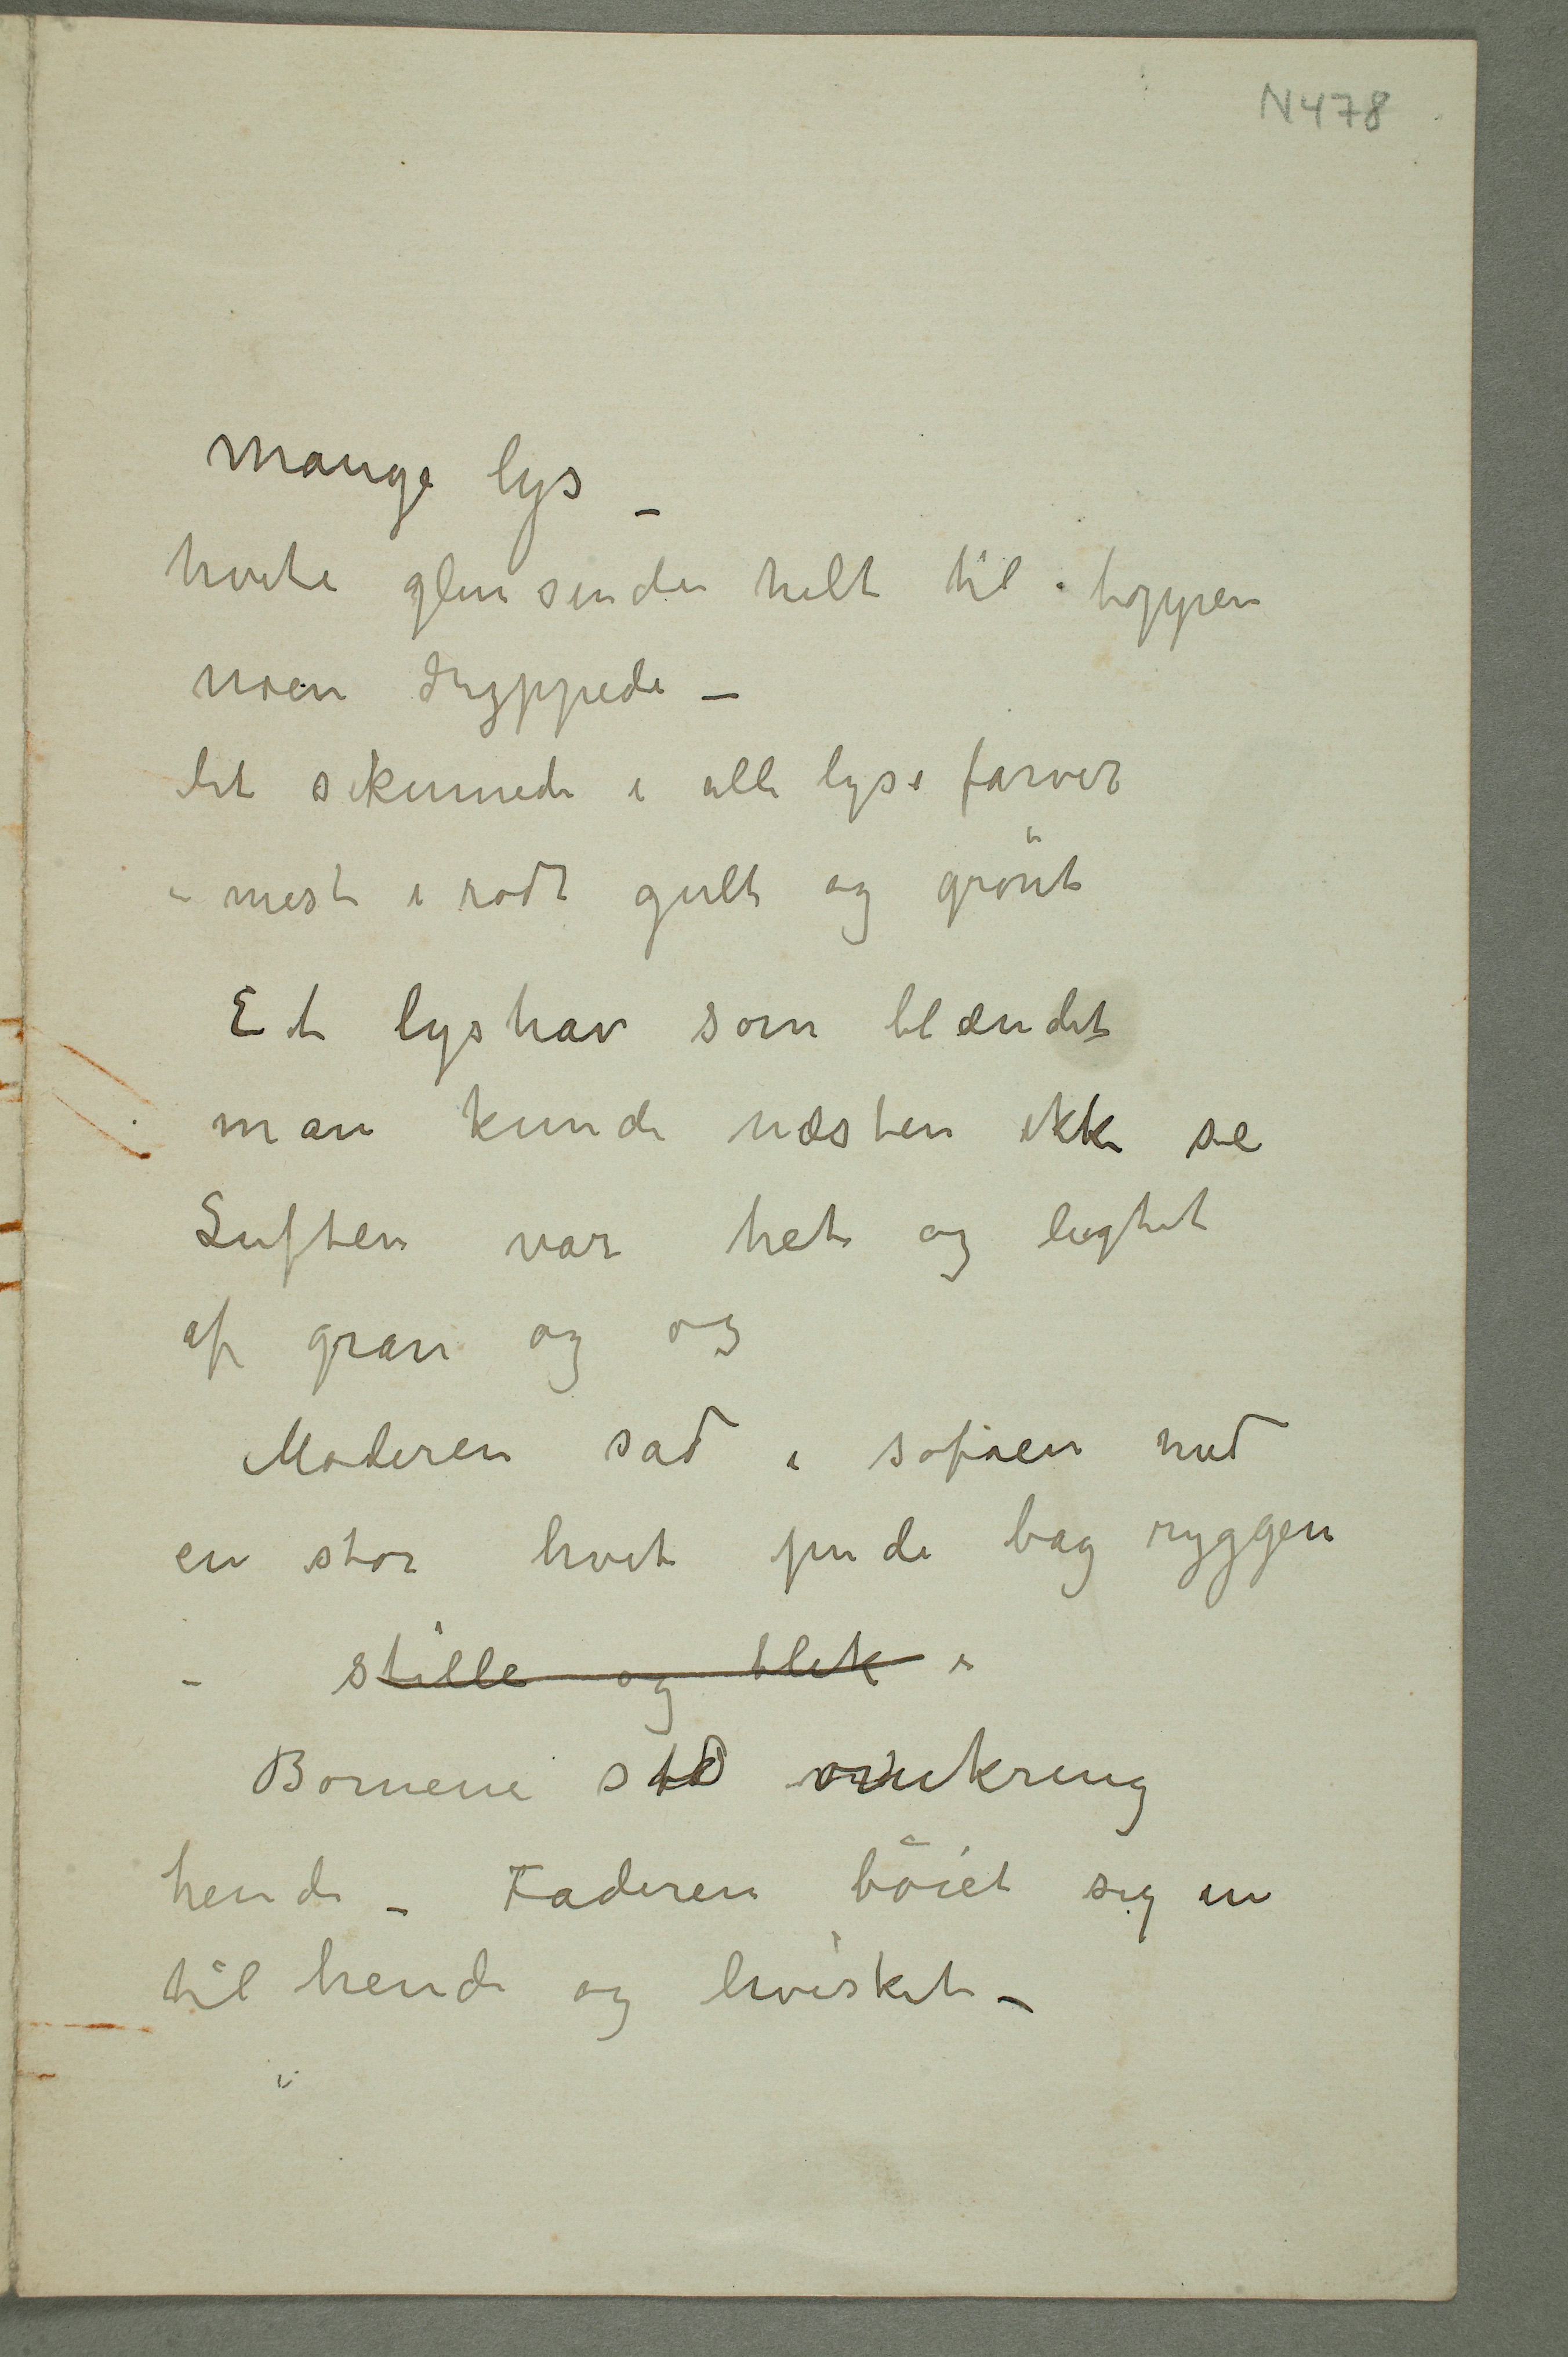 N478
mange lys –
hvite glinsende helt til toppen
noen dryppede –
det skinnede i alle lyse farver
– mest i rødt gult og grönt
Et lyshav som blændet
man kunde næsten ikke se
Luften var het og lugtet
af gran og og
Moderen sad i sofaen med
en stor hvit pude bag ryggen
– stille og blek –
Bornene stod omkring
hende – Faderen böiet sig in
til hende og hvisket –